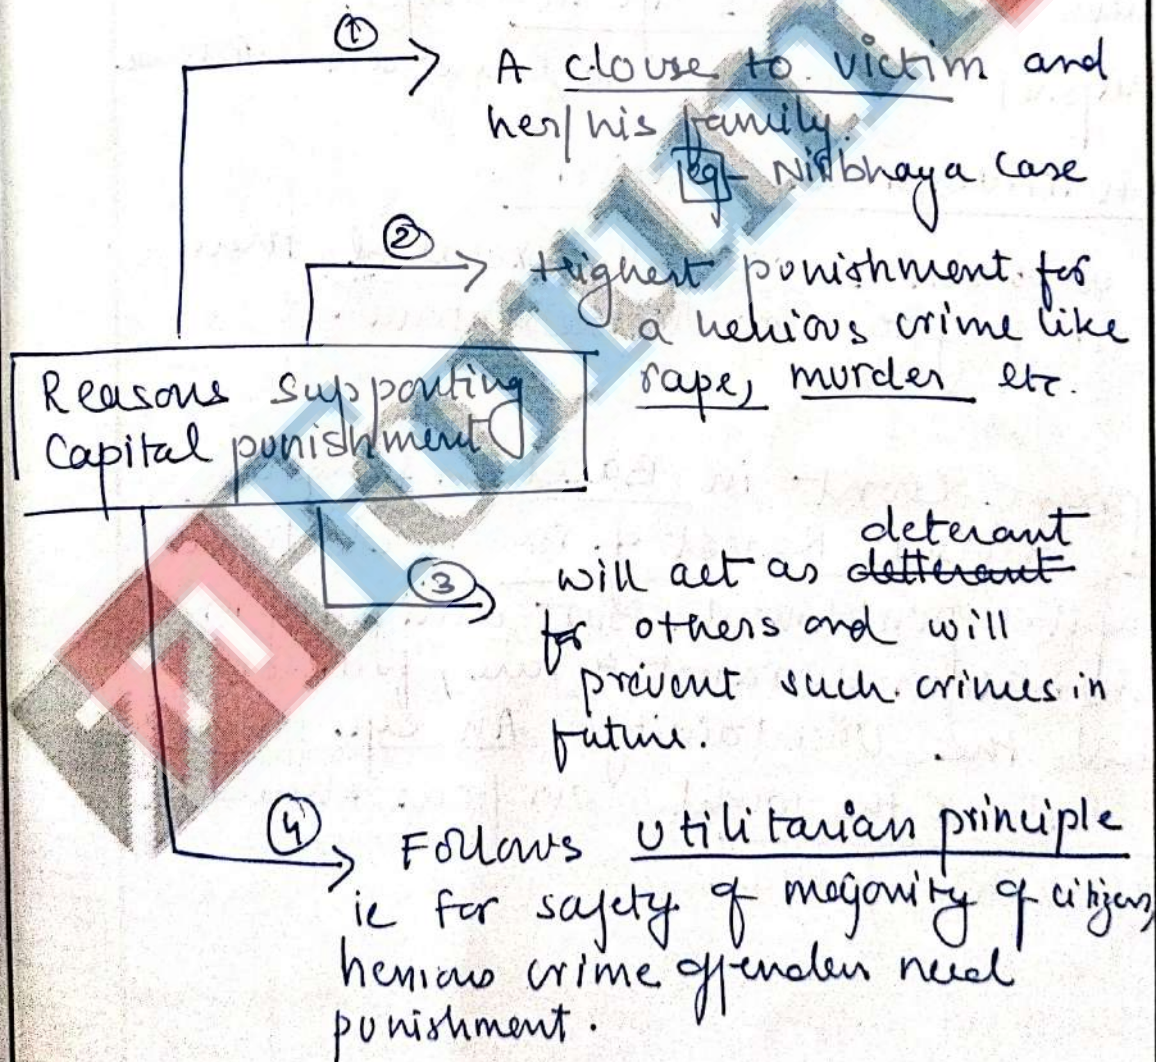 ①
A clouse to victim and
her/his family.
eg - Nirbhaya case
②
Highest punishment for
a henious crime like
rape, murder etc.
Reasons supporting
Capital punishment
③
deterant
will act as detterant
for others and will
prevent such crimes in
future.
④
Follows utilitarian principle
ie for safety of majority of citizens,
henious crime offenders need
punishment.
ForumIA